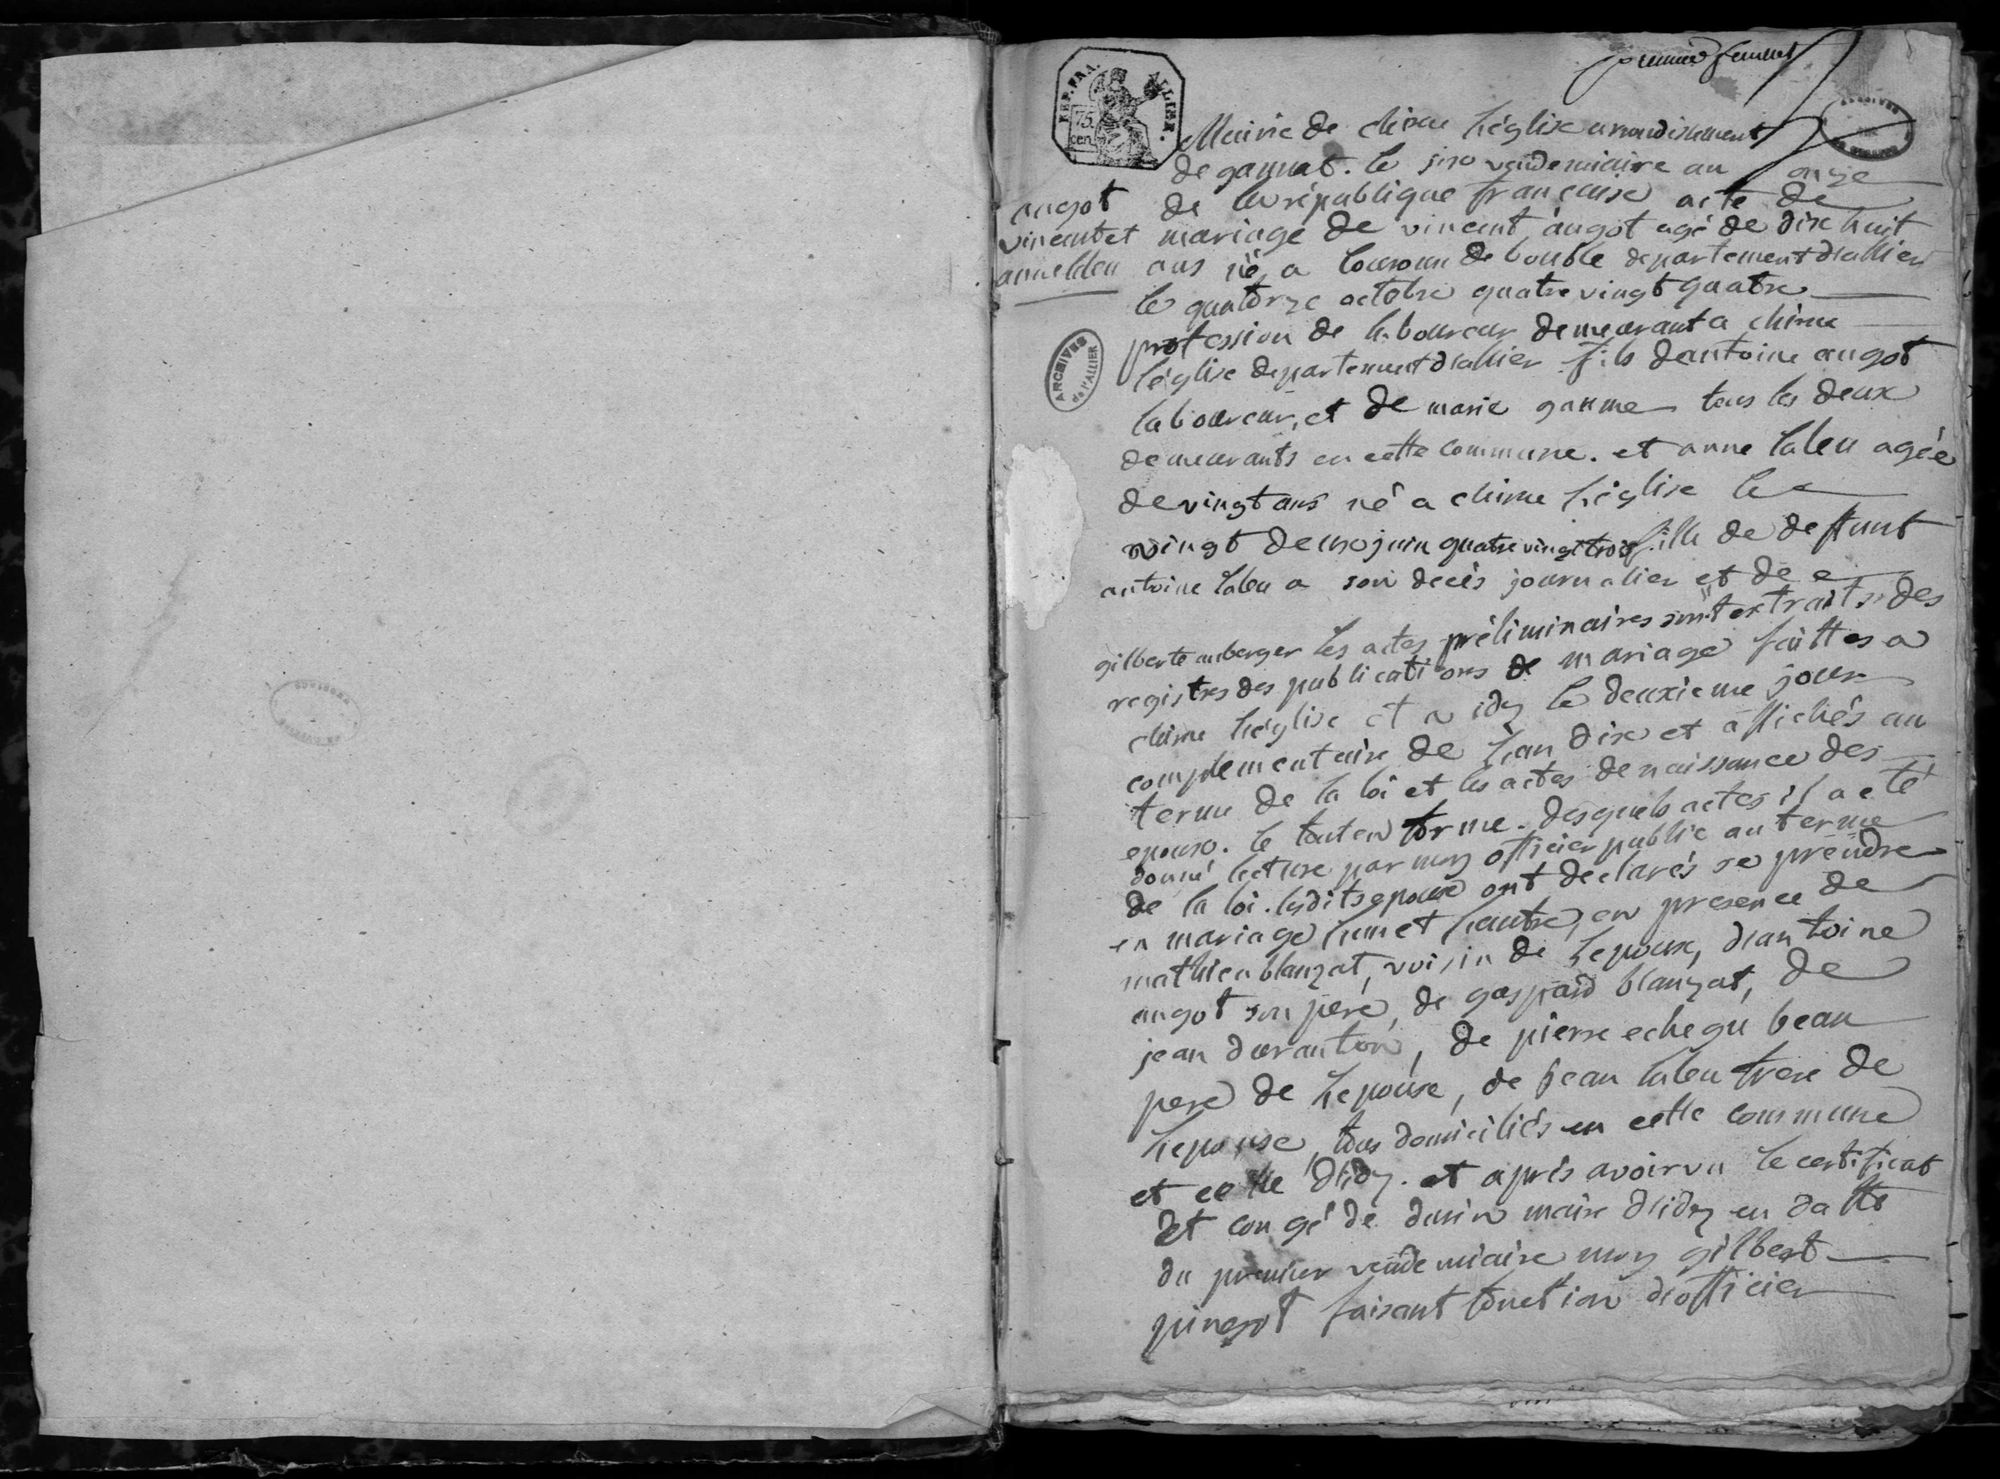 premier feuillet
REP. FRA. ALLIER.
75. cen
Mairie de chirac l'église arrondissement
de gannat. le six vendemiaire an onze
de la république francaise acte de
mariage de vincent angot agé de dix huit
ans né a louroux de bouble departement d'allier
le quatorze octobre quatre vingt quatre
profession de laboureur demeurant a chirac
l'église departement d'allier fils d'antoine angot
laboureur, et de marie ganme tous les deux
demeurants en cette commune. et anne laleu agée
de vingt ans né a chirac l'église le
vingt deux juin quatre vingt trois fille de deffunt
antoine laleu a son decès journalier et de
gilberte auberger les actes préliminaires sont extraits des
registres des publications de mariage faittes a
chirac l'église et a idy le deuxieme jour
complementaire de l'an dix et affichés au
terme de la loi et les actes de naissance des
epoux. le tout en forme. desquels actes il a eté
donné lecture par moy officier public au terme
de la loi. lesdits epoux ont declarés se prendre
en mariage l'un et l'autre, en presence de
mathieu blanzat, voisin de l'epoux, d'antoine
angot son pere, de gaspard blanzat, de
jean duranton, de pierre echegu beau
pere de l'epouse, de jean laleu frere de
l'epouse, tous domiciliés en cette commune
et celle d'idy. et après avoir vu le certificat
et congé de dusin maire d'idy en datte
du premier vendemiaire moy gilbert
pinegot faisant fonction d'officier
angot
vincent et
anne laleu
ARCHIVES
de l'ALLIER